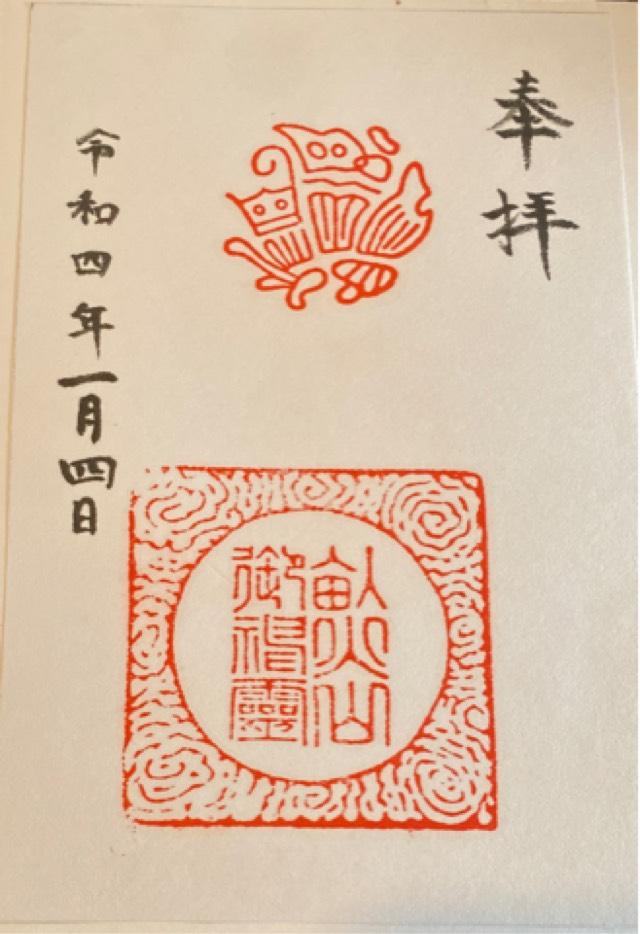 奉拝
畝火山
御神靈
令和四年一月四日